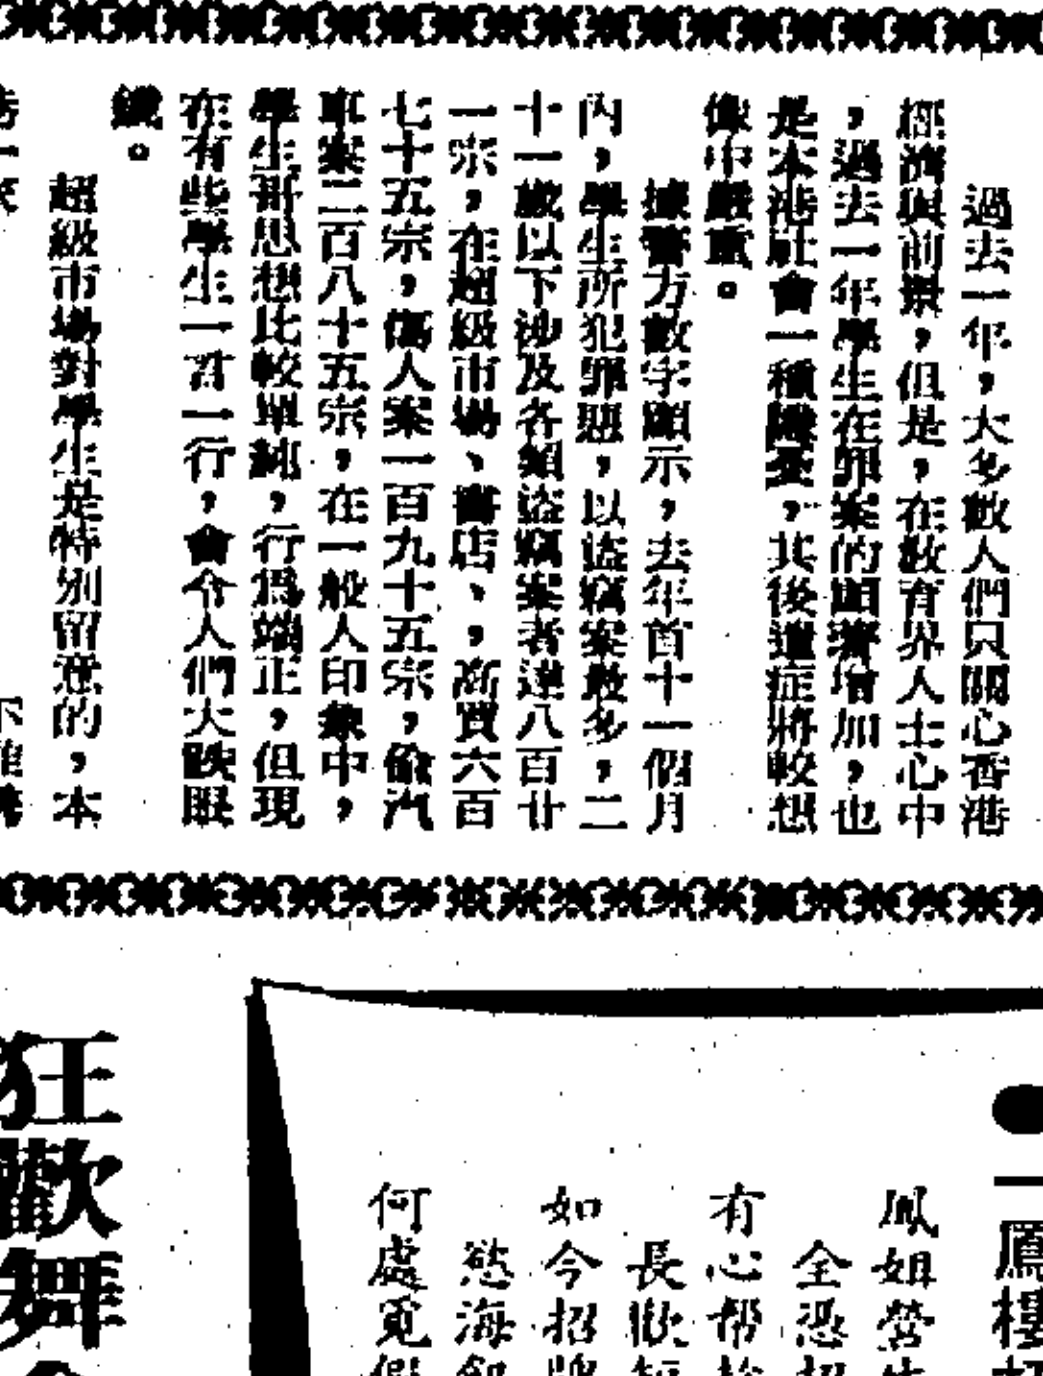 過去一年，大多數人們只關心香港
經濟與前景，但是，在教育界人士心中
，過去一年學生在罪案的顯著增加，也
是本港社會一種隱憂，其後遺症將較想
像中嚴重。
據警方數字顯示，去年首十一個月
內，學生所犯罪惡，以盜竊案最多，二
十一歲以下涉及各類盜竊案者達八百廿
一宗，在超級市場、書店、，高買六百
七十五宗，傷人案一百九十五宗，偷汽
車案二百八十五宗，在一般人印象中，
學生哥思想比較單純，行為端正，但現
在有些學生一言一行，會令人們大跌眼
鏡。
超級市場對學生是特別留意的，本
一鳳樓
鳳姐營
全憑招
有心帮
長歡短
如今招牌
慾海
何處覓
狂歡舞